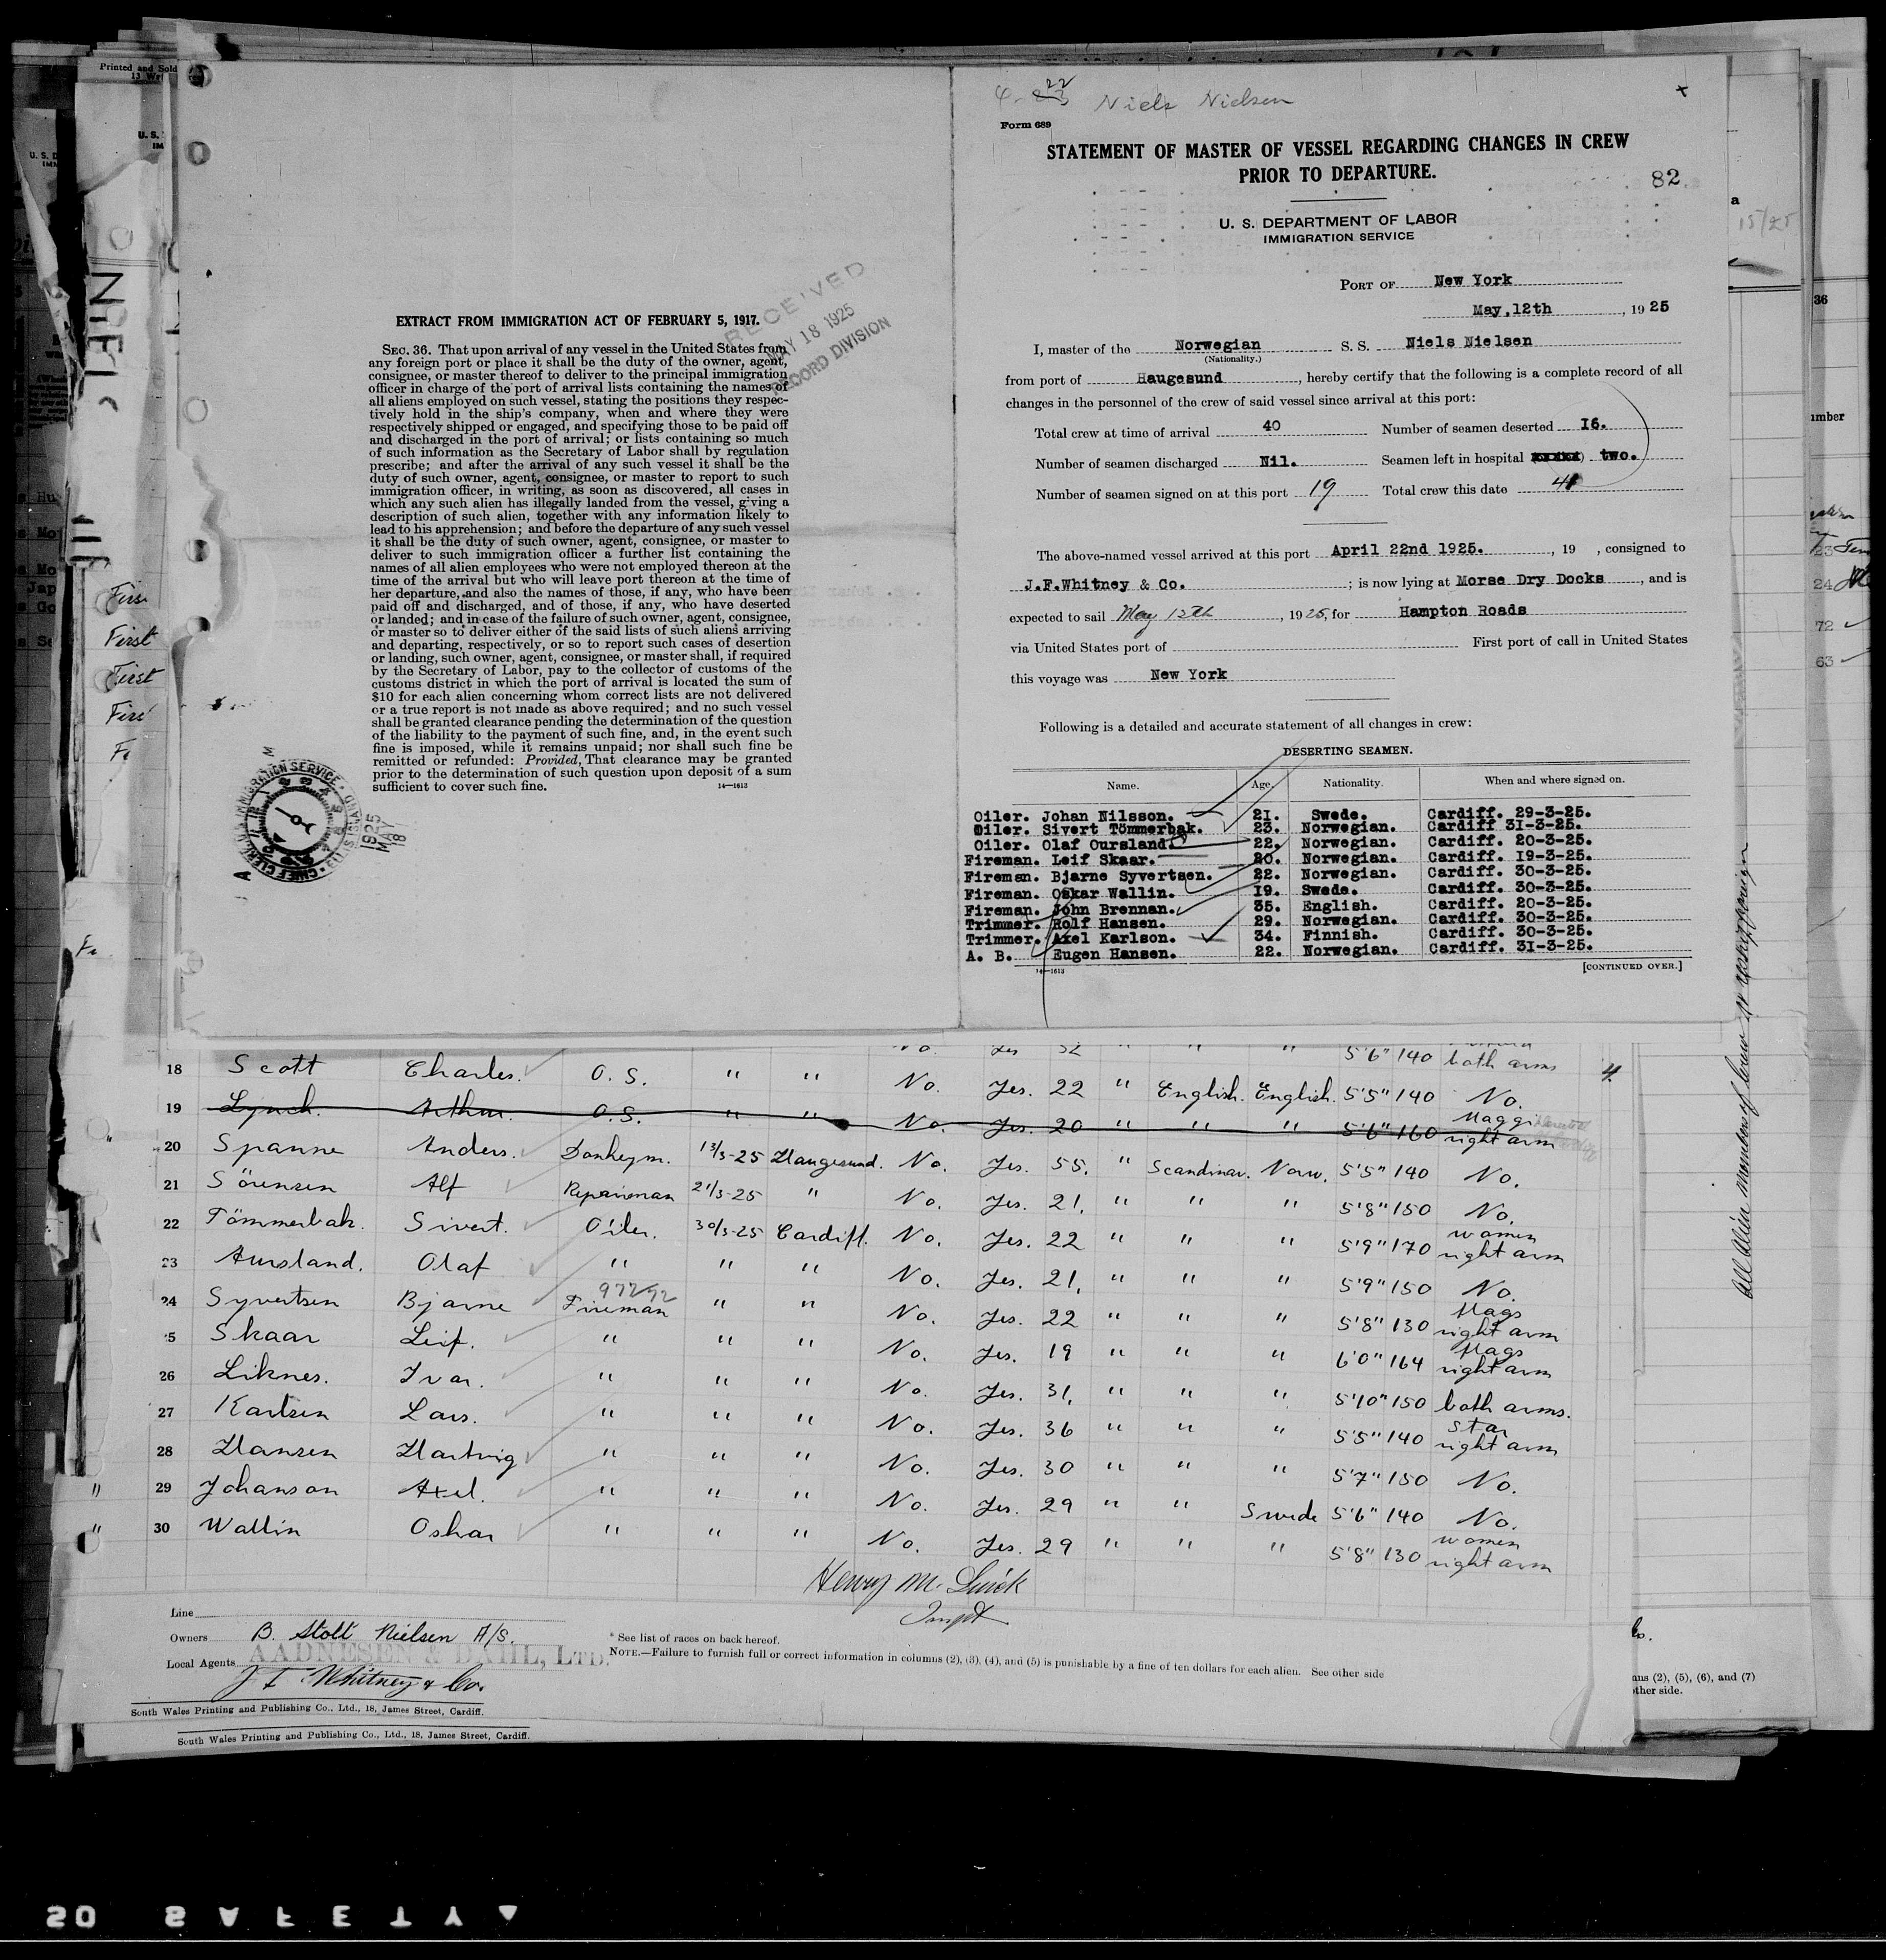 Printed and Sold
13 Wr
U. S.
IM
U. S. D
IMM
NIEL
Firs
First
First
Firs
EXTRACT FROM IMMIGRATION ACT OF FEBRUARY 5, 1917.
SEC. 36. That upon arrival of any vessel in the United States from
any foreign port or place it shall be the duty of the owner, agent,
consignee, or master thereof to deliver to the principal immigration
officer in charge of the port of arrival lists containing the names of
all aliens employed on such vessel, stating the positions they respec-
tively hold in the ship's company, when and where they were
respectively shipped or engaged, and specifying those to be paid off
and discharged in the port of arrival; or lists containing so much
of such information as the Secretary of Labor shall by regulation
prescribe; and after the arrival of any such vessel it shall be the
duty of such owner, agent, consignee, or master to report to such
immigration officer, in writing, as soon as discovered, all cases in
which any such alien has illegally landed from the vessel, giving a
description of such alien, together with any information likely to
lead to his apprehension; and before the departure of any such vessel
it shall be the duty of such owner, agent, consignee, or master to
deliver to such immigration officer a further list containing the
names of all alien employees who were not employed thereon at the
time of the arrival but who will leave port thereon at the time of
her departure, and also the names of those, if any, who have been
paid off and discharged, and of those, if any, who have deserted
or landed; and in case of the failure of such owner, agent, consignee,
or master so to deliver either of the said lists of such aliens arriving
and departing, respectively, or so to report such cases of desertion
or landing, such owner, agent, consignee, or master shall, if required
by the Secretary of Labor, pay to the collector of customs of the
customs district in which the port of arrival is located the sum of
$10 for each alien concerning whom correct lists are not delivered
or a true report is not made as above required; and no such vessel
shall be granted clearance pending the determination of the question
of the liability to the payment of such fine, and, in the event such
fine is imposed, while it remains unpaid; nor shall such fine be
remitted or refunded: Provided, That clearance may be granted
prior to the determination of such question upon deposit of a sum
sufficient to cover such fine. 14—1613
RECEIVED
MAY 18 1925
RECORD DIVISION
IMMIGRATION SERVICE · ELLIS ISLAND · CHIEF CLERK
1925 MAY 18
22 Niels Nielsen
Form 689
STATEMENT OF MASTER OF VESSEL REGARDING CHANGES IN CREW
PRIOR TO DEPARTURE.
82
U. S. DEPARTMENT OF LABOR
IMMIGRATION SERVICE
PORT OF New York
May,12th, 1925
I, master of the Norwegian S. S. Niels Nielsen
(Nationality.)
from port of Haugesund, hereby certify that the following is a complete record of all
changes in the personnel of the crew of said vessel since arrival at this port:
Total crew at time of arrival 40 Number of seamen deserted I6.
Number of seamen discharged Nil. Seamen left in hospital two.
Number of seamen signed on at this port 19 Total crew this date 41
The above-named vessel arrived at this port April 22nd 1925., 19 , consigned to
J.F.Whitney & Co.; is now lying at Morse Dry Docks, and is
expected to sail May 12th, 1925, for Hampton Roads
via United States port of First port of call in United States
this voyage was New York
Following is a detailed and accurate statement of all changes in crew:
DESERTING SEAMEN.
Name. Age. Nationality. When and where signed on.
Oiler. Johan Nilsson. 21. Swede. Cardiff. 29-3-25.
Oiler. Sivert Tömmerbak. 23. Norwegian. Cardiff 3I-3-25.
Oiler. Olaf Oursland. 22. Norwegian. Cardiff. 20-3-25.
Fireman. Leif Skaar. 20. Norwegian. Cardiff. I9-3-25.
Fireman. Bjarne Syvertsen. 22. Norwegian. Cardiff. 30-3-25.
Fireman. Oskar Wallin. I9. Swede. Cardiff. 30-3-25.
Fireman. John Brennan. 35. English. Cardiff. 20-3-25.
Trimmer. Rolf Hansen. 29. Norwegian. Cardiff. 30-3-25.
Trimmer. Axel Karlson. 34. Finnish. Cardiff. 30-3-25.
A. B. Eugen Hansen. 22. Norwegian. Cardiff. 3I-3-25.
14—1613 [CONTINUED OVER.]
Yes 32 " " " 5'6" 140 both arms
18 Scott Charles. O. S. " " No. Yes. 22 " English. English. 5'5" 140 No.
19 Lynch. Arthur. O.S. " " No. Yes. 20 " " " 5'6" 160 right arm
20 Spanne Anders. Donkeym. 13/3-25 Haugesund. No. Yes. 55. " Scandinav. Norw. 5'5" 140 No.
21 Sörensen Alf Repairman 21/3-25 " No. Yes. 21. " " " 5'8" 150 No.
22 Tömmerbak. Sivert. Oiler. 30/3-25 Cardiff. No. Yes. 22 " " " 5'9" 170 women right arm
23 Aursland. Olaf " " " No. Yes. 21. " " " 5'9" 150 No.
97292
24 Syvertsen Bjarne Fireman " " No. Yes. 22 " " " 5'8" 130 flags right arm
5 Skaar Leif. " " " No. Yes. 19 " " " 6'0" 164 flags right arm
26 Liknes. Ivar. " " " No. Yes. 31. " " " 5'10" 150 both arms.
27 Karlsen Lars. " " " No. Yes. 36 " " " 5'5" 140 star right arm
28 Hansen Hartvig " " " No. Yes. 30 " " " 5'7" 150 No.
29 Johanson Axel. " " " No. Yes. 29 " " Swede 5'6" 140 No.
30 Wallin Oskar " " " No. Yes. 29 " " " 5'8" 130 women right arm
Line
Owners B. Stolt Nielsen A/S.
AADNESEN & DAHL, LTD.
Local Agents J F Whitney & Co.
* See list of races on back hereof.
NOTE.—Failure to furnish full or correct information in columns (2), (3), (4), and (5) is punishable by a fine of ten dollars for each alien. See other side
South Wales Printing and Publishing Co., Ltd., 18, James Street, Cardiff.
South Wales Printing and Publishing Co., Ltd., 18, James Street, Cardiff.
15/25
36
mber
23
24
72
63
ns (2), (5), (6), and (7)
other side.
SAFETY